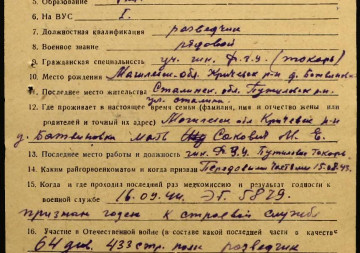 5. Образование
6. На ВУС I.
7. Должностная квалификация разведчик
8. Военное звание рядовой
9. Гражданская специальность уч. Ф.З.У. (токарь)
10. Место рождения Могилев. обл. Кричевск р-н д. Ботвиновка
11. Последнее место жительства Сталинск. обл. р-н.
ул. Сталина.
12. Где проживает в настоящее время семья (фамилия, имя и отчество жены или
родителей и точный их адрес) Могилев обл Кричевск р-н
д. Ботвиновка мать М. Е.
13. Последнее место работы и должность Ф.З.У. токарь
14. Каким райгорвоенкоматом и когда призван Передовой частями 15.08.43.
15. Когда и где проходил последний раз медкомиссию и результат годности к
военной службе 16.09.44. ЭГ 5879.
признан годен к строевой службе
16. Участие в Отечественной войне (в составе какой последней части в качестве
64 див. 433 стр. полк разведчик